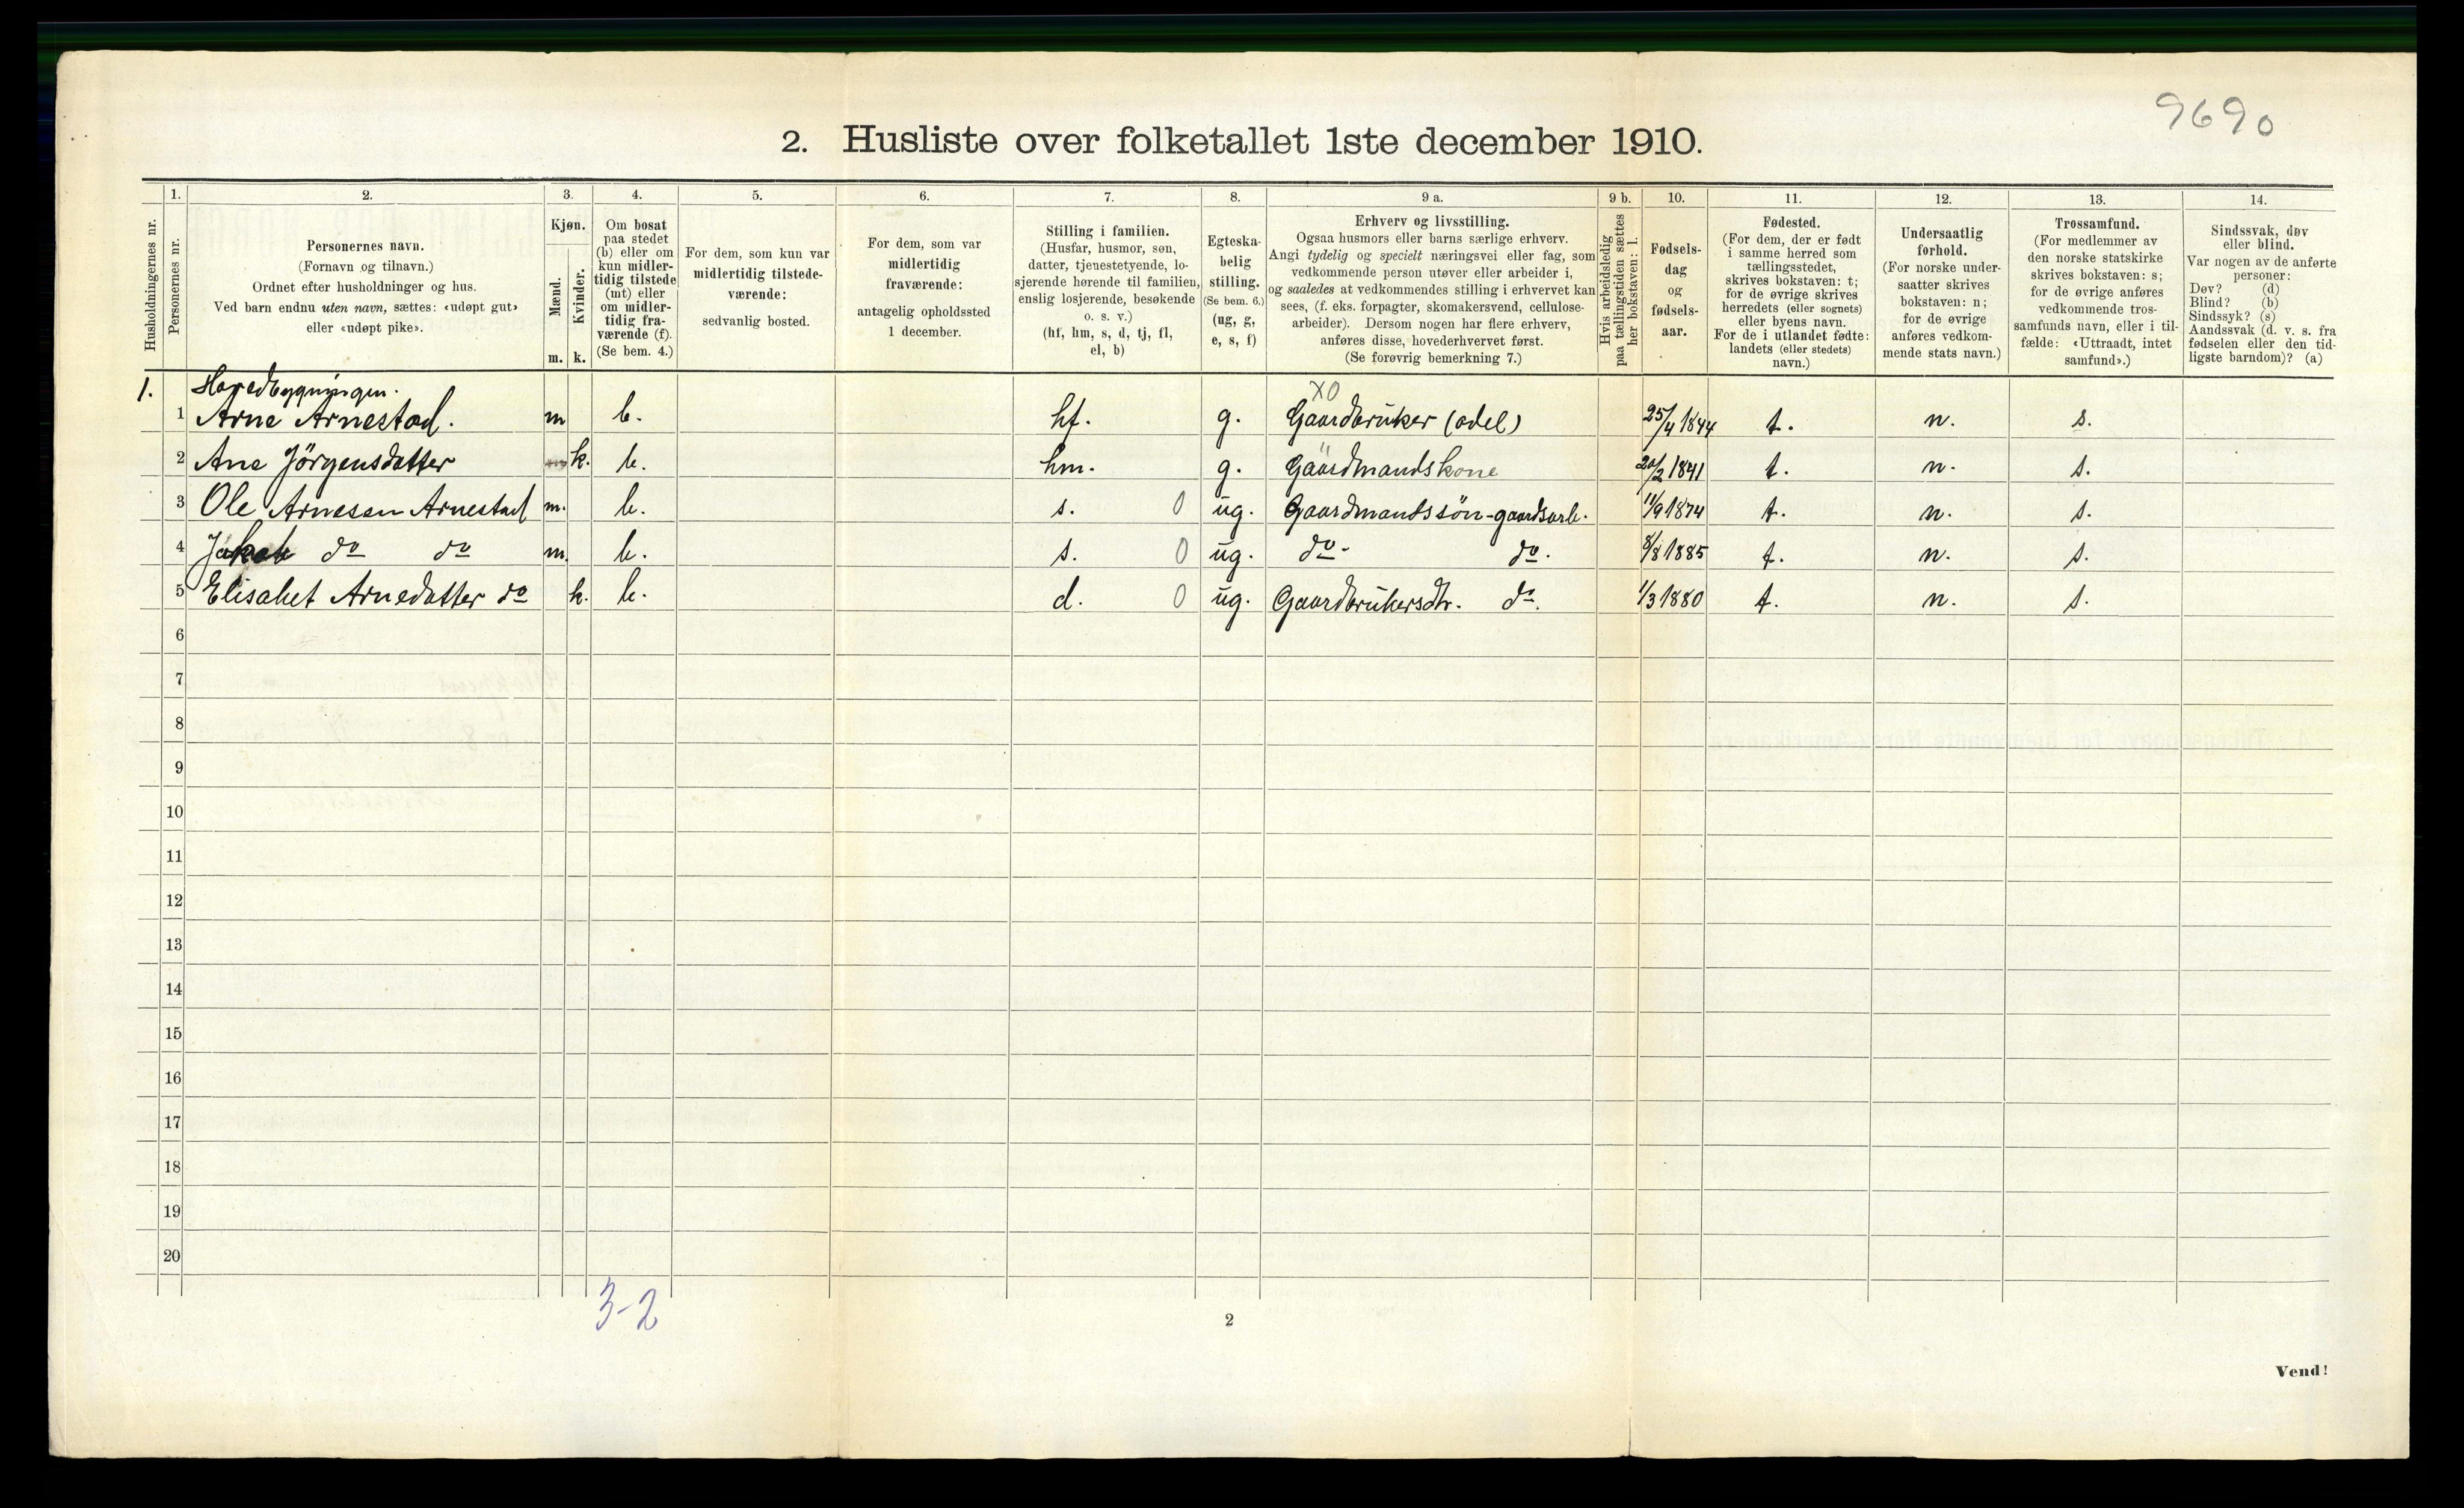 9690
2. Husliste over folketallet 1ste december 1910.
Husholdningernes nr.
1.
Personernes nr.
2.
Personernes navn.
(Fornavn og tilnavn.)
Ordnet efter husholdninger og hus.
Ved barn endnu uten navn, sættes: «udøpt gut»
eller «udøpt pike».
3.
Kjøn.
Mænd.
Kvinder.
m. k.
4.
Om bosat
paa stedet
(b) eller om
kun midler-
tidig tilstede
(mt) eller
om midler-
tidig fra-
værende (f).
(Se bem. 4.)
5.
For dem, som kun var
midlertidig tilstede-
værende:
sedvanlig bosted.
6.
For dem, som var
midlertidig
fraværende:
antagelig opholdssted
1 december.
7.
Stilling i familien.
(Husfar, husmor, søn,
datter, tjenestetyende, lo-
sjerende hørende til familien,
enslig losjerende, besøkende
o. s. v.)
(hf, hm, s, d, tj, fl,
el, b)
8.
Egteska-
belig
stilling.
(Se bem. 6.)
(ug, g,
e, s, f)
9 a.
Erhverv og livsstilling.
Ogsaa husmors eller barns særlige erhverv.
Angi tydelig og specielt næringsvei eller fag, som
vedkommende person utøver eller arbeider i,
og saaledes at vedkommendes stilling i erhvervet kan
sees, (f. eks. forpagter, skomakersvend, cellulose-
arbeider). Dersom nogen har flere erhverv,
anføres disse, hovederhvervet først.
(Se forøvrig bemerkning 7.)
9 b.
Hvis arbeidsledig
paa tællingstiden sættes
her bokstaven: l.
10.
Fødsels-
dag
og
fødsels-
aar.
11.
Fødested.
(For dem, der er født
i samme herred som
tællingsstedet,
skrives bokstaven: t;
for de øvrige skrives
herredets (eller sognets)
eller byens navn.
For de i utlandet fødte:
landets (eller stedets)
navn.)
12.
Undersaatlig
forhold.
(For norske under-
saatter skrives
bokstaven: n;
for de øvrige
anføres vedkom-
mende stats navn.)
13.
Trossamfund.
(For medlemmer av
den norske statskirke
skrives bokstaven: s;
for de øvrige anføres
vedkommende tros-
samfunds navn, eller i til-
fælde: «Uttraadt, intet
samfund».)
14.
Sindssvak, døv
eller blind.
Var nogen av de anførte
personer:
Døv? (d)
Blind? (b)
Sindssyk? (s)
Aandssvak (d. v. s. fra
fødselen eller den tid-
ligste barndom)? (a)
1. Hovedbygningen. X0
1 Arne Arnestad. m b. hf. g. Gaardbruker (odel) 25/4 1844 t. n. s.
2 Ane Jörgensdatter k. b. hm. g. Gaardmandskone 20/2 1841 t. n. s.
3 Ole Arnesen Arnestad m. b. s. 0 ug. Gaardmandssön-gaardsarb. 11/9 1874 t. n. s.
4 Jakob do do m. b. s. 0 ug. do- do. 8/8 1885 t. n. s.
5 Elisabet Arnedatter do k. b. d. 0 ug. Gaardbrukersdtr. do. 1/3 1880 t. n. s.
6
7
8
9
10
11
12
13
14
15
16
17
18
19
20
3-2
2
Vend!